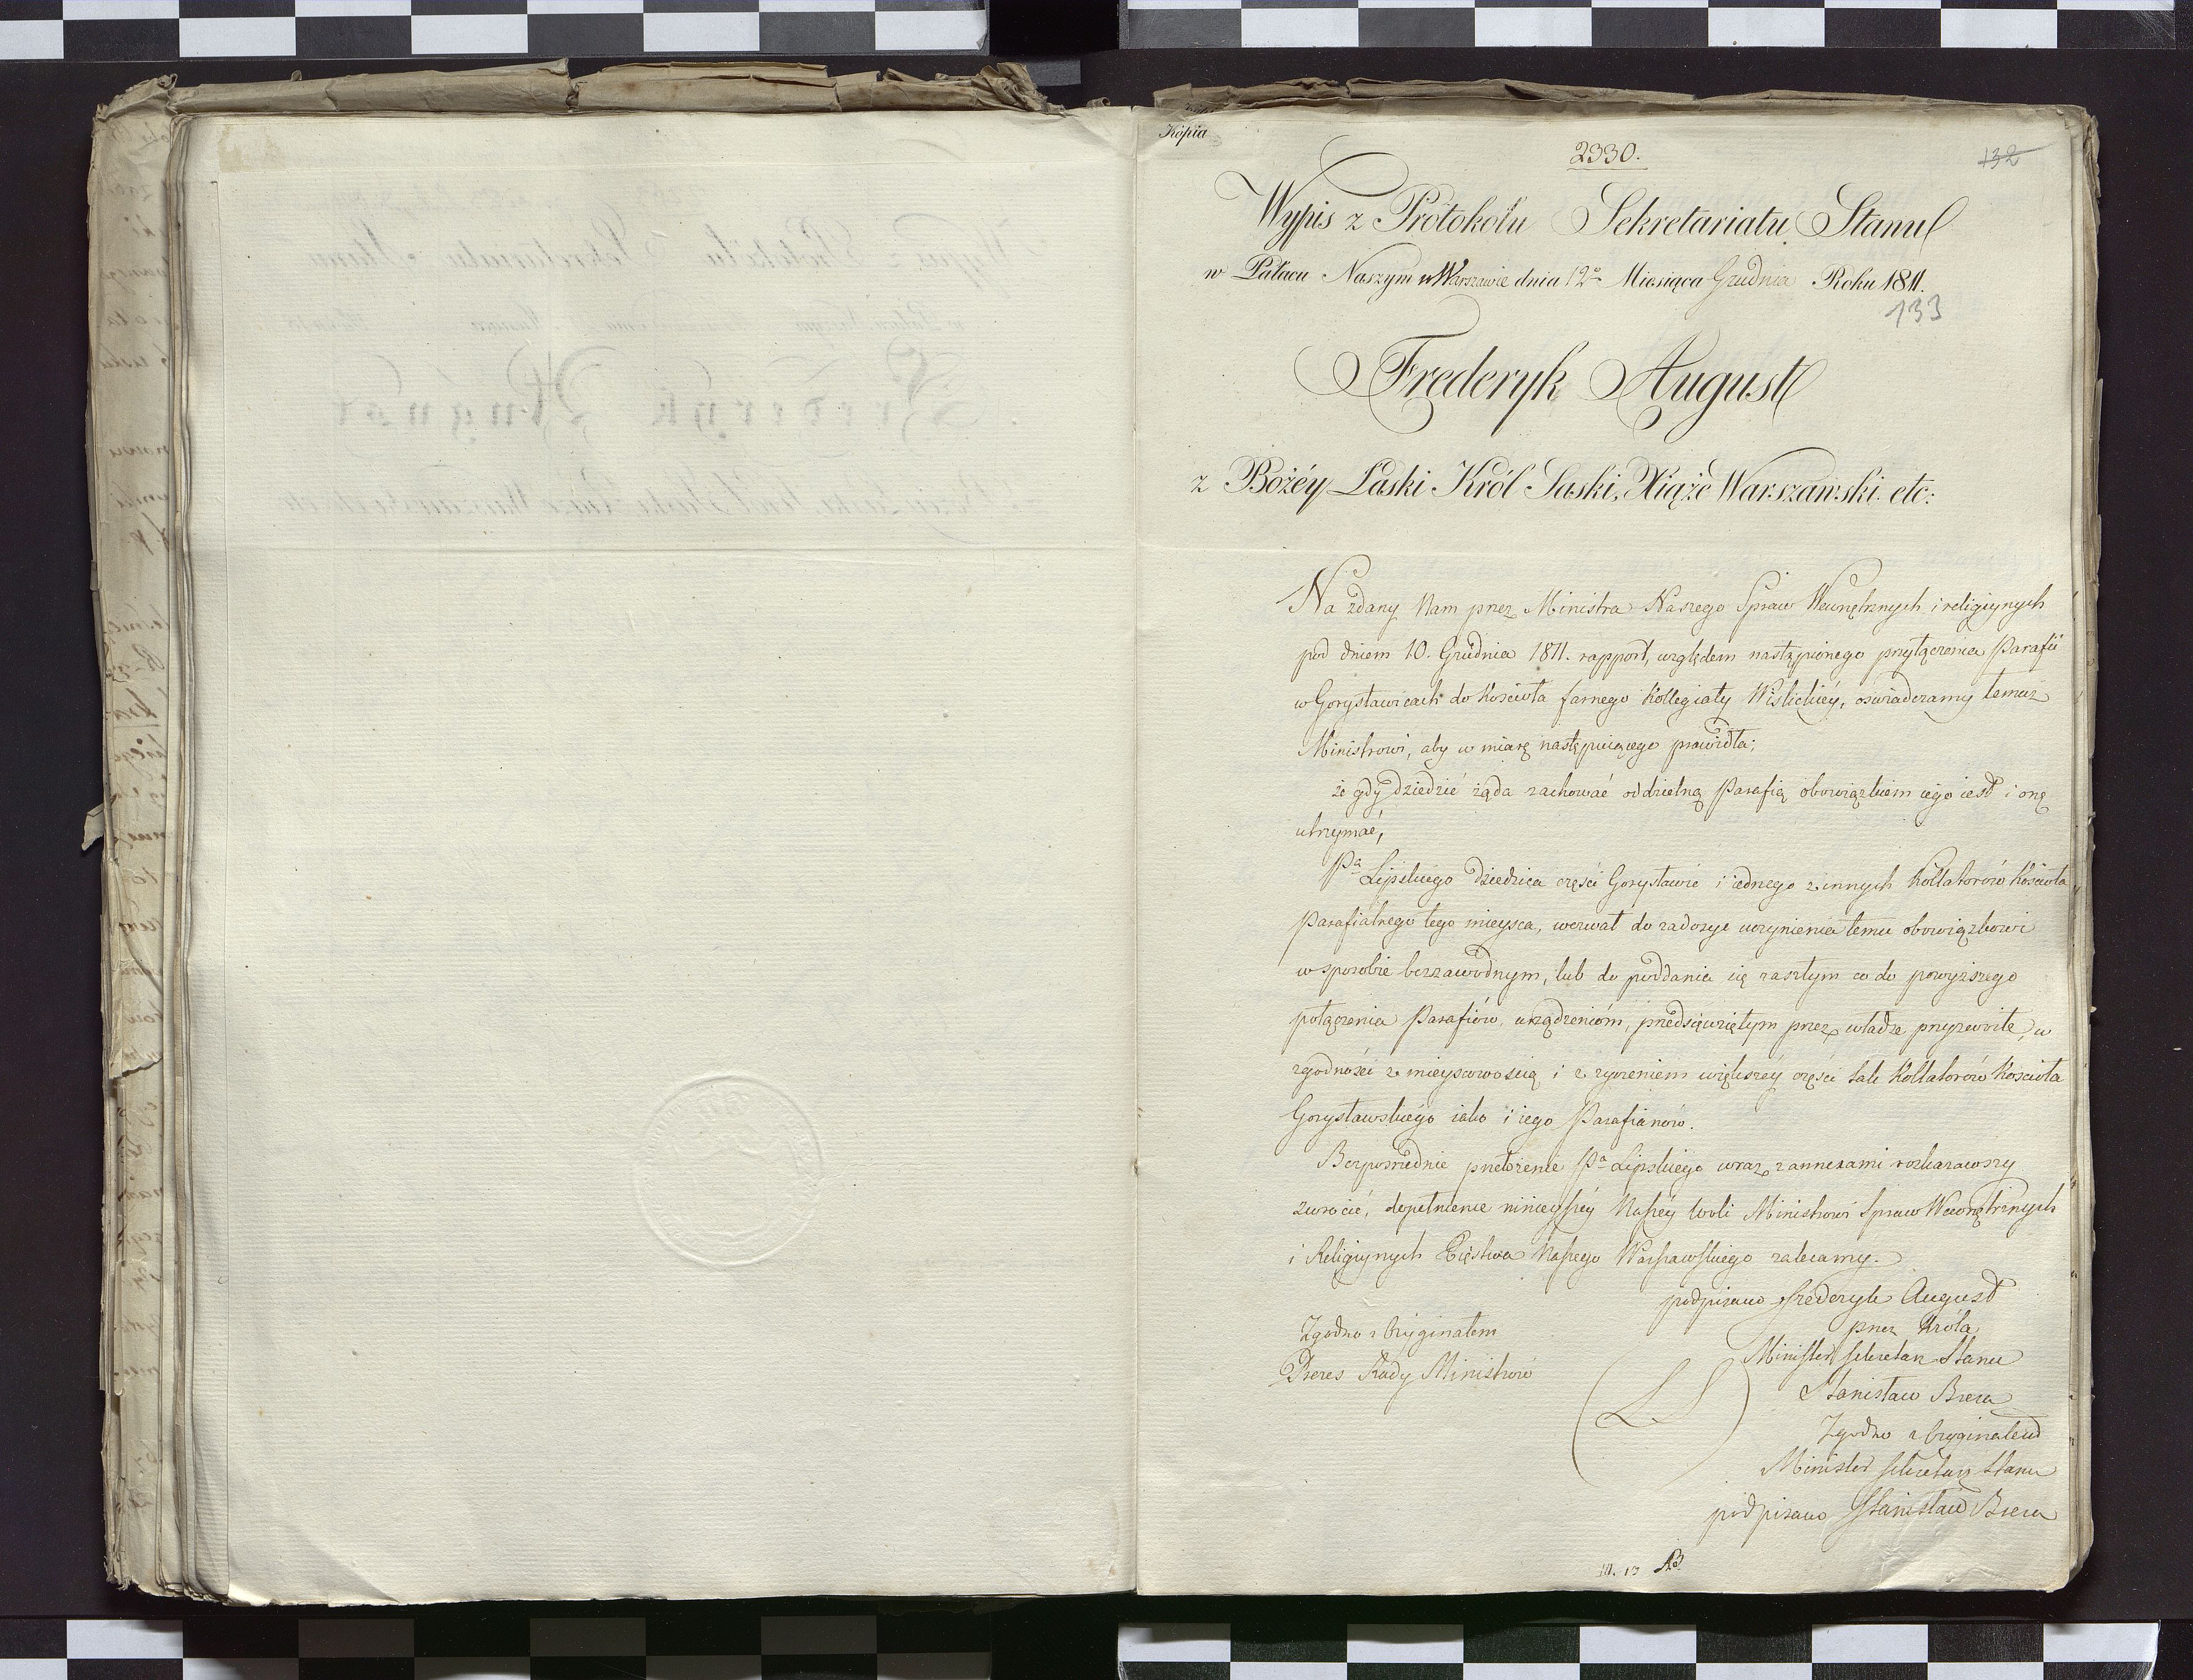 Kópia
2330.
132
Wypis z Protokołu Sekretariatu Stanu
w Pałacu Naszym w Warszawie dnia 12º Miesiąca Grudnia Roku 1811.
133
Frederyk August
z Bożéy Łaski Król Saski, Xiąże Warszawski. etc:
Na zdany Nam przez Ministra Naszego Spraw Wewnętrznych i religiynych
pod dniem 10. Grudnia 1811. rapport, względem nastąpionego przyłączenia Parafii
w Gorysławicach do Kościoła farnego Kollegiaty Wiślickiéy, oświadczamy temuż
Ministrowi, aby w miarę następuiącego prawidła;
że gdy dziedzic żąda zachować oddzielną Parafią obowiązkiem iego iest i onę
utrzymać,
Pª Lipskiego dziedzica części Gorysławic i iednego z innych Kollatorów Kościoła
Parafialnego tego mieysca, wezwał do zadosyć uczynienia temu obowiązkowi
w sposobie bezzawodnym, lub do poddania się zaszłym co do powyższego
połączenia Parafiów, urządzeniom, przedsięwziętym przez władze przyzwoite, w
zgodności z mieyscowością i z życzeniem większéy części tak Kollatorów Kościoła
Gorysławskiégo iako i iego Parafianów.
Bezpośrednie przełożenie Pª Lipskiego wraz z annexami rozkazawszy
zwrócić, dopełnienie ninieyszéy Naszéy woli Ministrowi Spraw Wewnętrznych
i Religiynych Xięstwa Naszego Warszawskiego zalecamy.
podpisano Frederyk August
przez Króla
Minister Sekretarz Stanu
Stanisław Breza
Zgodno z Oryginałem
Prezes Rady Ministrów
(LS)
Zgodno z Oryginałem
Minister Sekretarz Stanu
podpisano Stanisław Breza